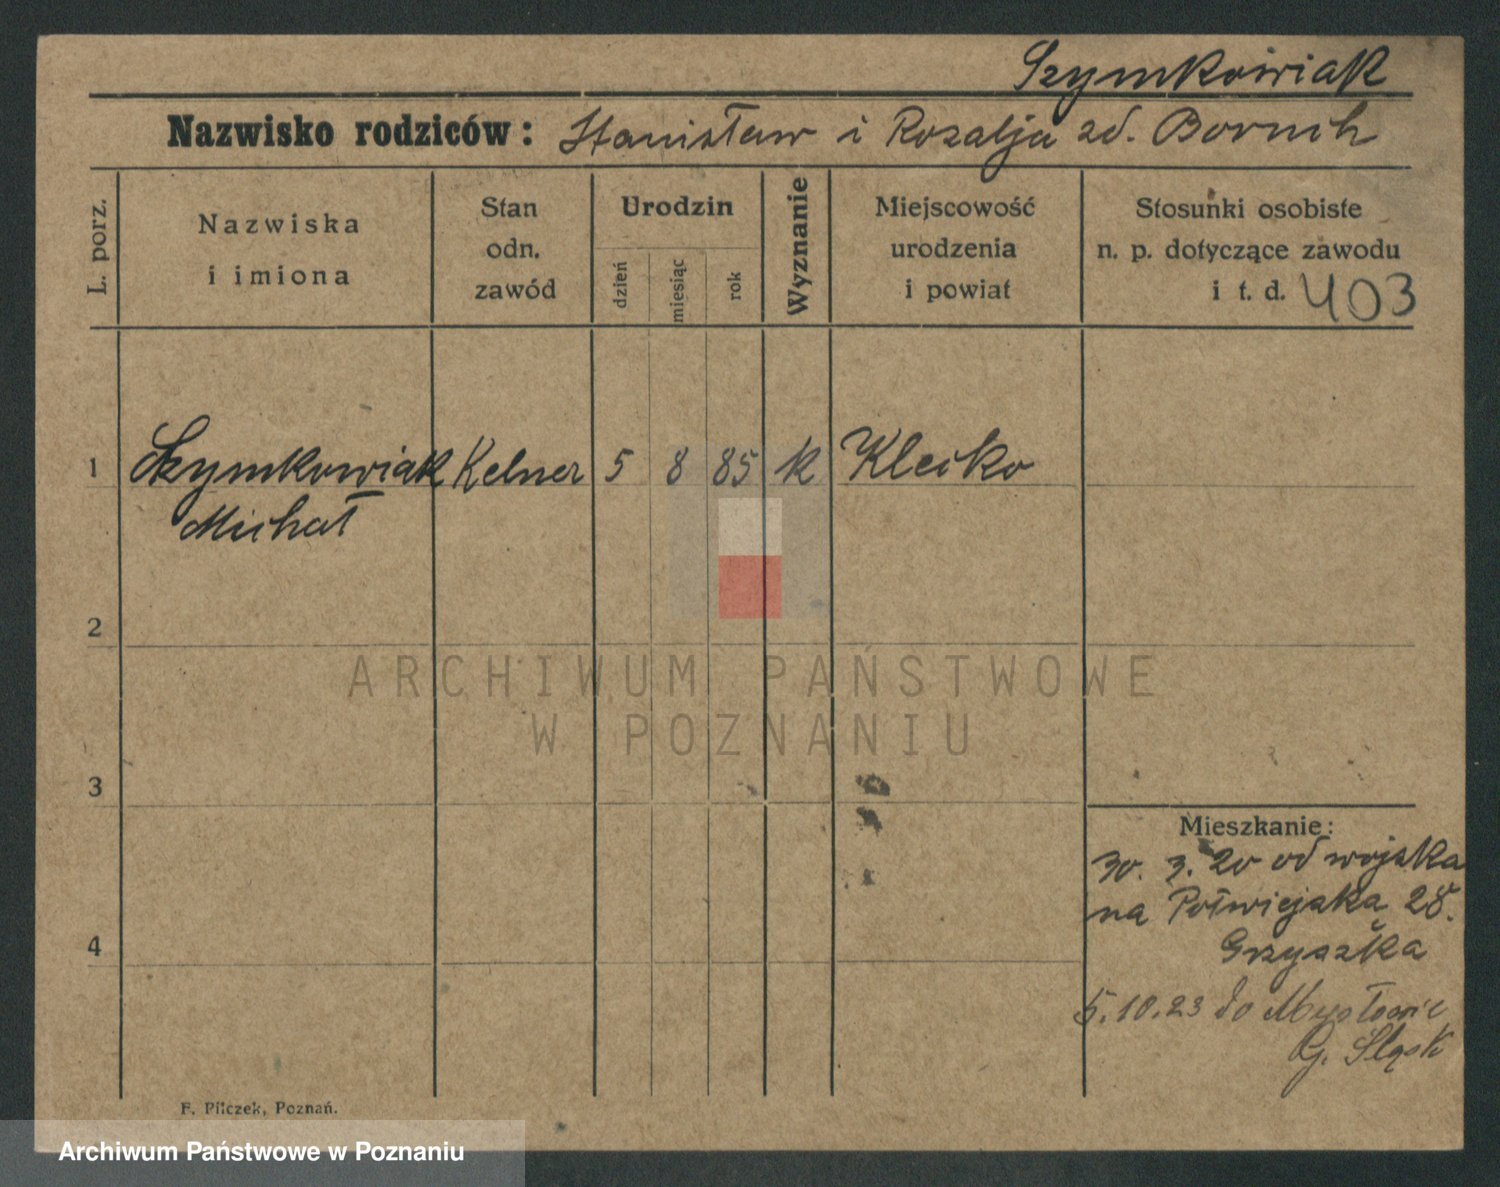 Szymkowiak
Nazwisko rodziców: Stanisław i Rozalja zd. Boruch
L. porz.
Nazwiska
i imiona
Stan
odn.
zawód
Urodzin
dzień
miesiąc
rok
Wyznanie
Miejscowość
urodzenia
i powiat
Stosunki osobiste
n. p. dotyczące zawodu
i t. d. 403
1 Szymkowiak Kelner 5 8 85 k Klecko
Michał
2
3
4
Mieszkanie:
30. 3. 20 od wojska
na Półwiejska 28.
Grzyszka
5.10.23 do Mysłowic
G. Śląsk
F. Pilczek, Poznań.
ARCHIWUM PAŃSTWOWE
W POZNANIU
Archiwum Państwowe w Poznaniu